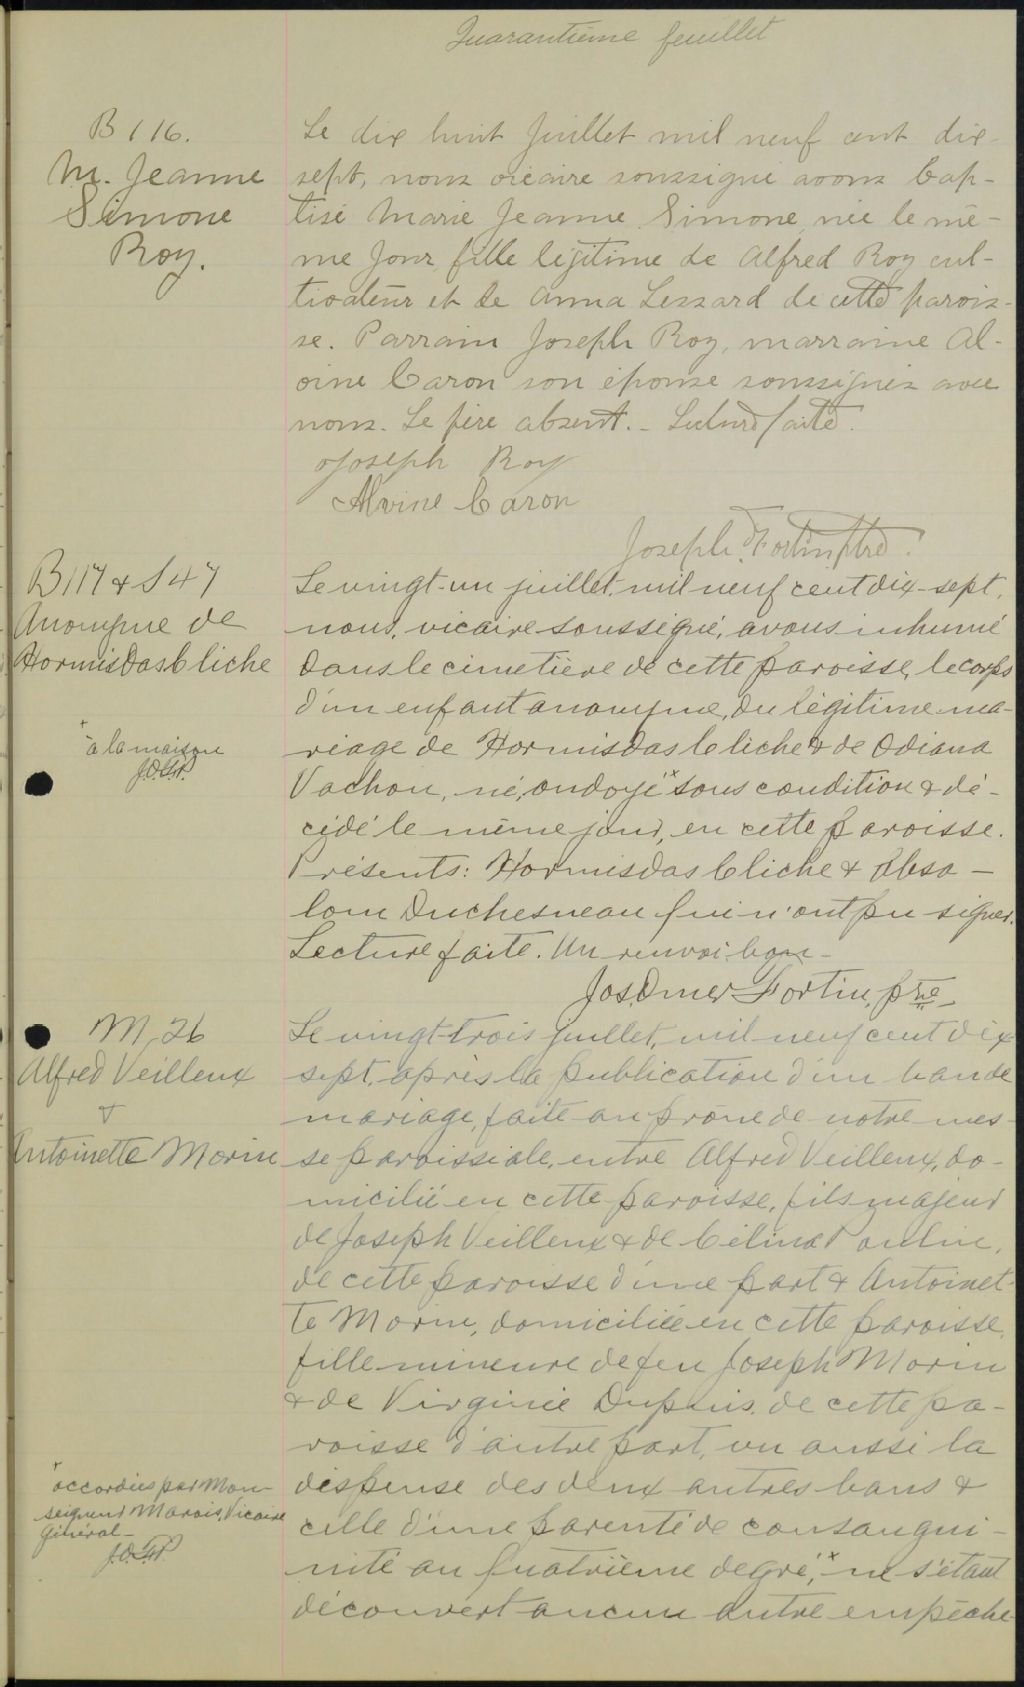 Quarantième feuillet
B 116.
M. Jeanne
Simone
Roy.
Le dix huit Juillet mil neuf cent dix-
sept, nous vicaire soussigné avons bap-
tisé Marie Jeanne Simone née le mê-
me Jour fille légitime de Alfred Roy cul-
tivateur et de Anna Lessard de cette parois-
se. Parrain Joseph Roy, marraine Al-
vine Caron son épouse soussignés avec
nous. Le père absent. - Lecture faite.
Joseph Roy
Alvine Caron
Joseph Fortin ptre.
B 117 & S 47
Anonyme de
Hormisdas Cliche
+ à la maison
J.O.F.P.
Le vingt-un juillet, mil neuf cent dix-sept,
nous, vicaire soussigné, avons inhumé
dans le cimetière de cette paroisse, le corps
d'un enfant anonyme, du légitime ma-
riage de Hormisdas Cliche & de Odiana
Vachon, né, ondoyé x sous condition & dé-
cédé le même jour, en cette paroisse.
Présents: Hormisdas Cliche & Absa-
lom Duchesneau qui n'ont pu signer.
Lecture faite. Un renvoi bon -
Jos. Omer Fortin, ptre
M. 26
Alfred Veilleux
&
Antoinette Morin
Le vingt-trois juillet, mil neuf cent dix
sept, après la publication d'un ban de
mariage, faite au prône de notre mes-
se paroissiale, entre Alfred Veilleux, do-
micilié en cette paroisse, fils majeur
de Joseph Veilleux & de Célina Poulin,
de cette paroisse d'une part & Antoinet-
te Morin, domiciliée en cette paroisse,
fille mineure de feu Joseph Morin
& de Virginie Dupuis, de cette pa-
roisse d'autre part, vu aussi la
dispense des deux autres bans &
celle d'une parenté de consangui-
nité au quatrième degré, x ne s'étant
découvert aucun autre empêche-
x accordées par Mon-
seigneur Marois, Vicaire
Général -
J.O.F.P.